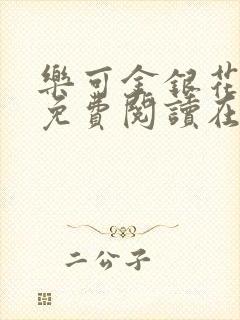 樂可金銀花
免費閱讀在
二公子